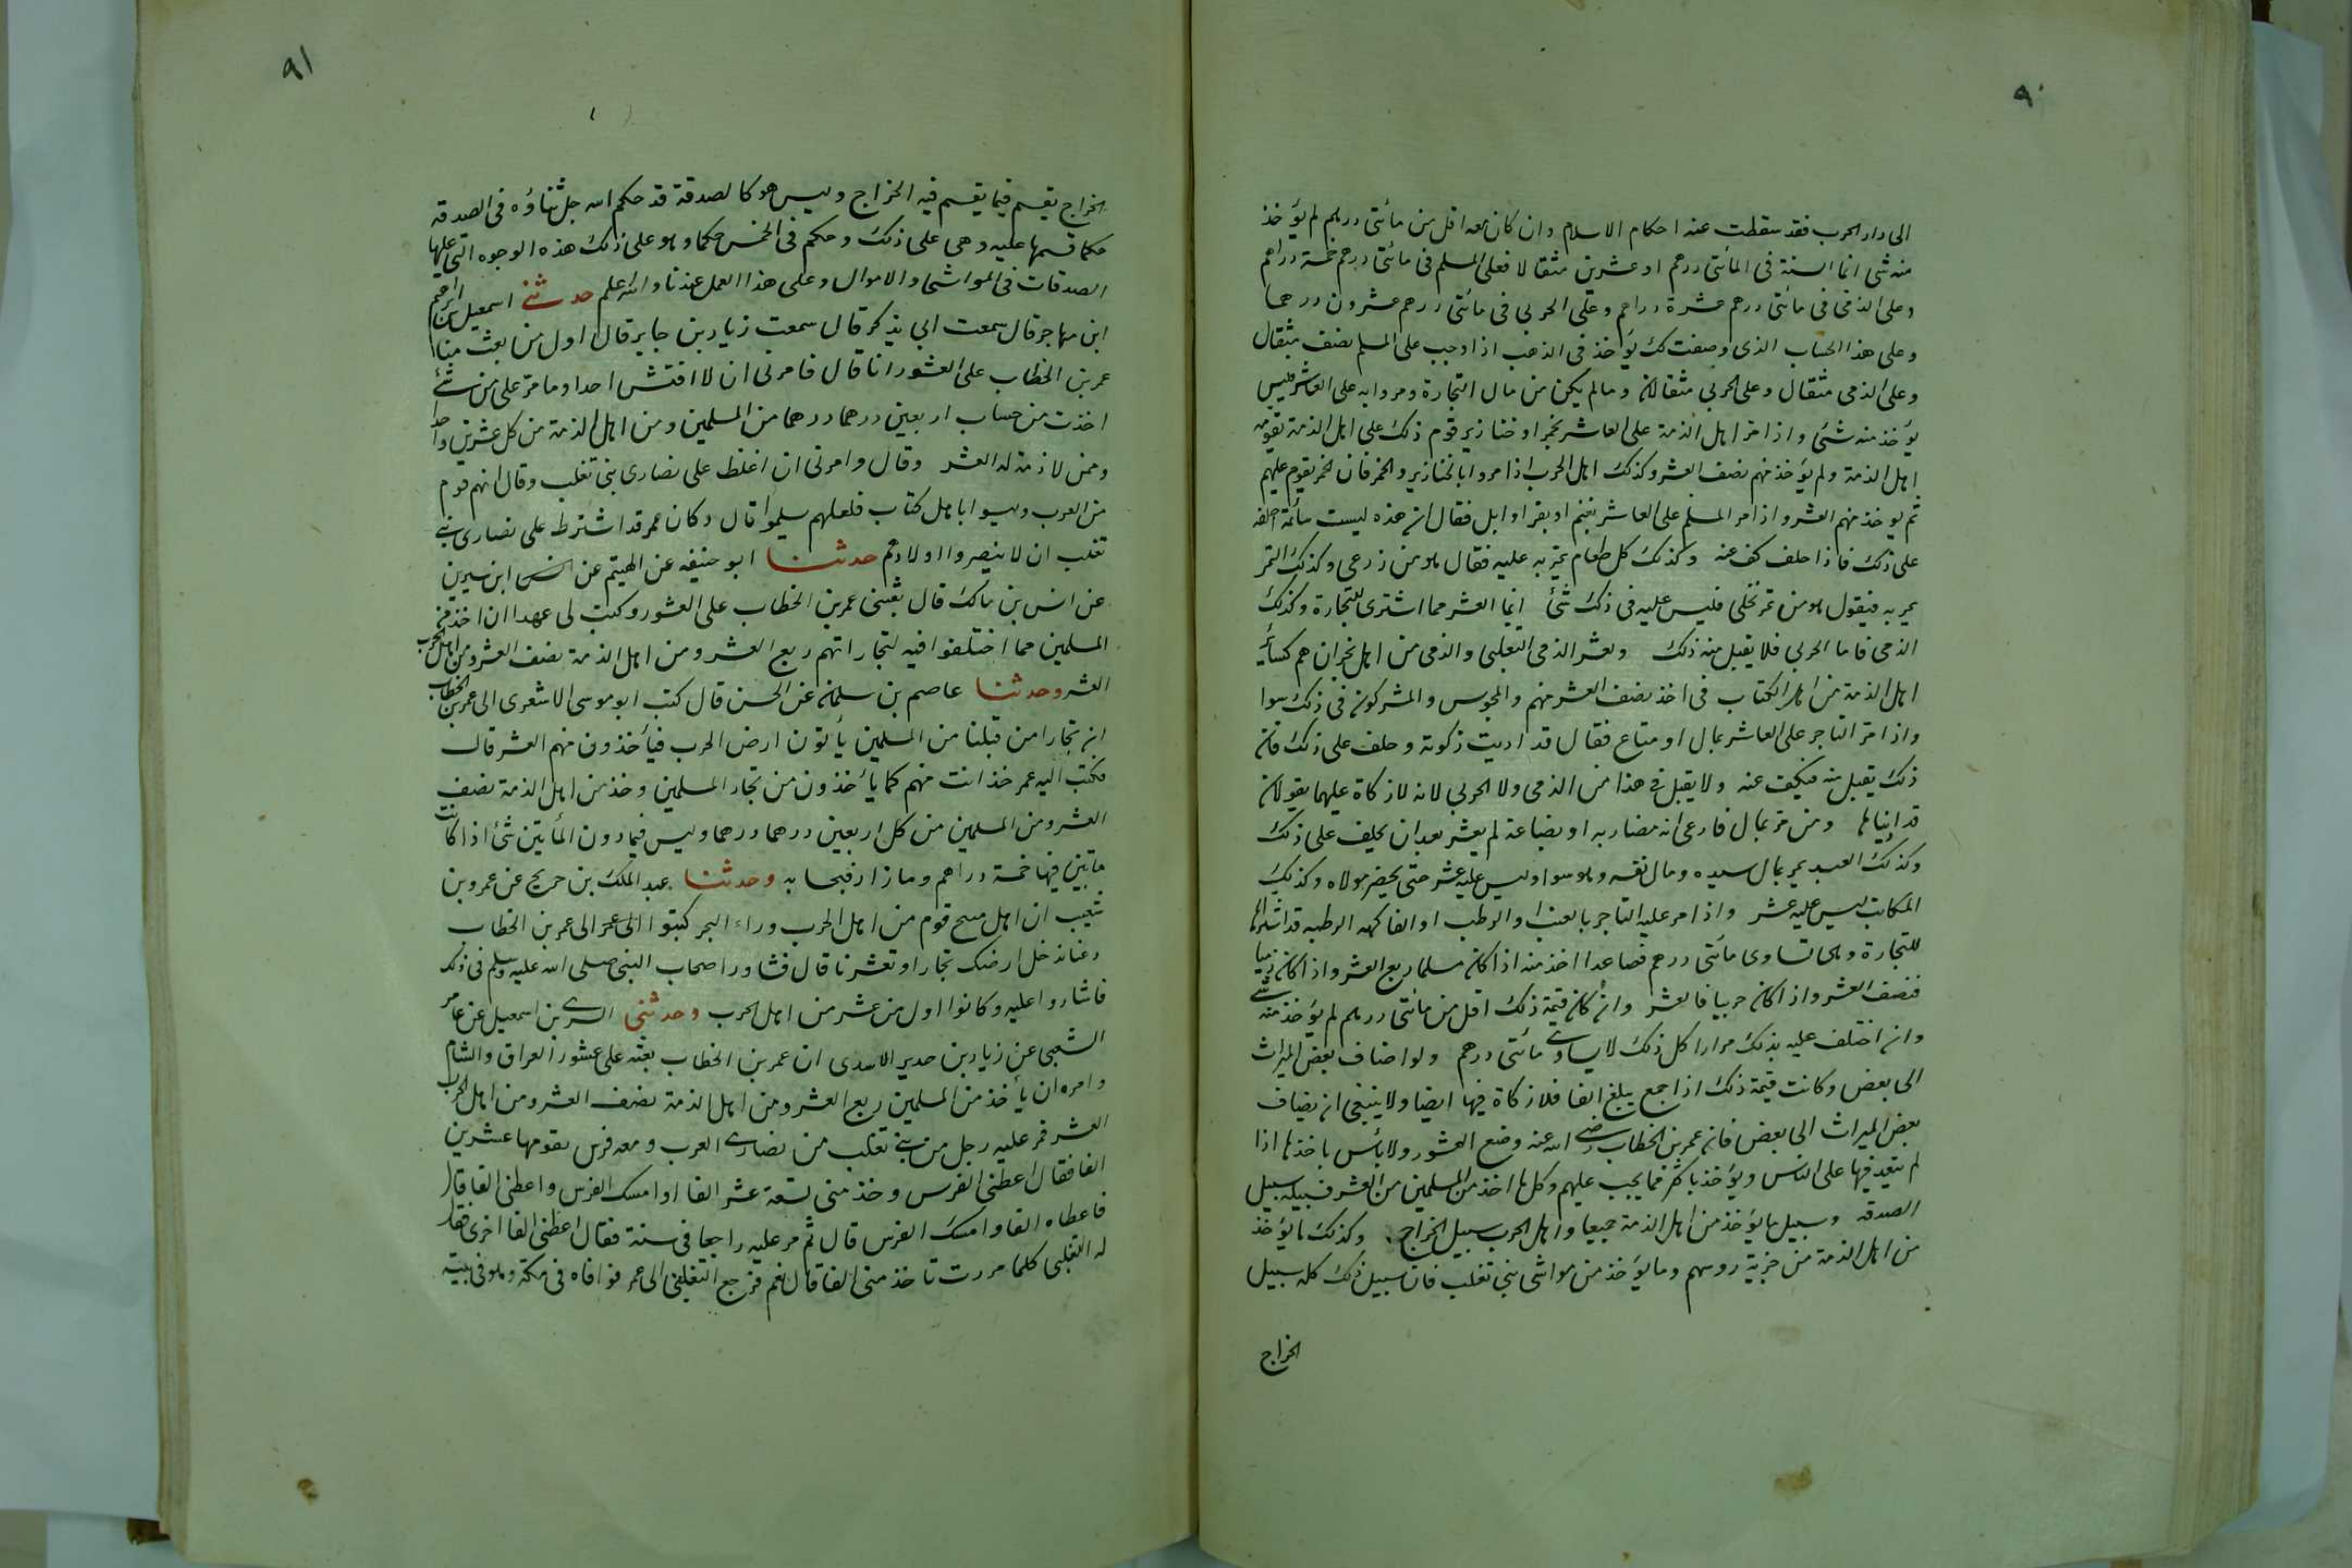 ٩٠
الى دار الحرب فقد سقطت عنه احكام الاسلام وان كان معه اقل من مائتى درهم لم يؤخذ
منه شى انما السنة فى المأتى درهم او عشرين مثقالا فعلى المسلم فى مائتى درهم خمسة دراهم
وعلى الذمى فى مائتى درهم عشرة دراهم وعلى الحربى فى مائتى درهم عشرون درهما
وعلى هذا الحساب الذى وصفت لك يؤخذ فى الذهب اذا وجب على المسلم نصف مثقال
وعلى الذمى مثقال وعلى الحربى مثقالان ومالم يكن من مال التجارة ومروا به على العاشر فليس
يؤخذ منه شئى واذا مر اهل الذمة على العاشر بخمر او خنازير قوم ذلك على اهل الذمة تقومه
اهل الذمة ولم يؤخذ منهم نصف العشر وكذلك اهل الحرب اذا مروا بالخنازير والخمر فان الخمر يقوم عليهم
ثم يوخذ منهم العشر واذا مر المسلم على العاشر بغنم او بقر او ابل فقال ان هذه ليست سائمة احلفه
على ذلك فاذا حلف كف عنه وكذلك كل طعام يمر به عليه فقال هو من زرعى وكذلك التمر
يمر به فيقول هو من تمر نخلى فليس عليه فى ذلك شئ انما العشر مما اشترى للتجارة وكذلك
الذمى فاما الحربى فلا يقبل منه ذلك ويعشر الذمى التغلبى والذمى من اهل نجران هم كسائر
اهل الذمة من اهل الكتاب فى اخذ نصف العشر منهم والمجوس والمشركون فى ذلك سوا
واذا مر التاجر على العاشر بمال او متاع فقال قد اديت زكوته وحلف على ذلك فان
ذلك يقبل منه فيكف عنه ولا يقبل فى هذا من الذمى ولا الحربى لانه لا زكاة عليهما يقولان
قد اديناها ومن مر بمال فادعى انه مضاربه او بضاعة لم يعشر بعد ان يحلف على ذلك
وكذلك العبد يمر بمال سيده ومال نفسه وهو سوا وليس عليه عشر حتى يحضر مولاه وكذلك
المكاتب ليس عليه عشر واذا مر عليه التاجر بالعنب او الرطب او الفاكهه الرطبه قد اشتراها
للتجارة وهى تساوى مائتى درهم فصاعدا اخذ منه اذا كان مسلما ربع العشر واذا كان ذميا
فنصف العشر واذا كان حربيا فالعشر وان كان قيمة ذلك اقل من مائتى درهم لم يؤخذ منه شئ
وان اختلف عليه بذلك مرارا كل ذلك لا يساوى مائتى درهم ولو اضاف بعض المرات
الى بعض وكانت قيمة ذلك اذا جمع يبلغ الفا فلا زكاة فيها ايضا ولا ينبغى ان يضاف
بعض المرات الى بعض فان عمر بن الخطاب رضى الله عنه وضع العشور ولا بأس باخذها اذا
لم يتعد فيها على الناس ويؤخذ باكثر مما يجب عليهم وكل ما اخذ من المسلمين من العشر فسبيله سبيل
الصدقه وسبيل ما يؤخذ من اهل الذمة جميعا واهل الحرب سبيل الخراج وكذلك ما يؤخذ
من اهل الذمة من جزية روسهم وما يؤخذ من مواشى بنى تغلب فان سبيل ذلك كله سبيل
الخراج
٩١
الخراج يقسم فيما يقسم فيه الخراج وليس هو كالصدقة قد حكم الله جل ثناؤه فى الصدقه
حكما قسمها عليه وهى على ذلك وحكم فى الخمس حكما وهو على ذلك هذه الوجوه التى عليها
الصدقات فى المواشى والاموال وعلى هذا العمل عندنا والله اعلم حدثنى اسمعيل بن ابراهيم
ابن مهاجر قال سمعت ابى يذكر قال سمعت زياد بن جابر قال اول من بعث منا
عمر بن الخطاب على العشور انا قال فامرنى ان لا افتش احدا وما مر على من شئ
اخذت من حساب اربعين درهما درهما من المسلمين ومن اهل الذمة من كل عشرين واحدا
وممن لا ذمة له العشر وقال وامرنى ان اغلظ على نصارى بنى تغلب وقال انهم قوم
من العرب وليسوا باهل كتاب فلعلهم يسلموا قال وكان عمر قد اشترط على نصارى بنى
تغلب ان لا ينصروا اولادهم حدثنا ابو حنيفه عن الهيثم عن انس ابن سيرين
عن انس بن مالك قال بعثنى عمر بن الخطاب على العشور وكتب لى عهدا ان اخذ من
المسلمين مما اختلفوا فيه لتجاراتهم ربع العشر ومن اهل الذمة نصف العشر ومن اهل الحرب
العشر وحدثنا عاصم بن سليمان عن الحسن قال كتب ابو موسى الاشعرى الى عمر بن الخطاب
ان تجارا من قبلنا من المسلمين يأتون ارض الحرب فيأخذون منهم العشر قال
فكتب اليه عمر خذ انت منهم كما يأخذون من تجار المسلمين وخذ من اهل الذمة نصف
العشر ومن المسلمين من كل اربعين درهما درهما وليس فيما دون المأتين شئ اذا كانت
مائتين فيها خمسة دراهم وما زاد فبحسابه وحدثنا عبد الملك بن جريج عن عمرو بن
شعيب ان اهل منبج قوم من اهل الحرب وراء البحر كتبوا الى عمر الى عمر بن الخطاب
دعنا ندخل ارضك تجارا وتعشرنا قال فشاور اصحاب النبى صلى الله عليه وسلم فى ذلك
فاشاروا عليه وكانوا اول من عشر من اهل الحرب وحدثنى السرى بن اسمعيل عن عامر
الشعبى عن زياد بن حدير الاسدى ان عمر بن الخطاب بعثه على عشور العراق والشام
وامره ان يأخذ من المسلمين ربع العشر ومن اهل الذمة نصف العشر ومن اهل الحرب
العشر فمر عليه رجل من بنى تغلب من نصارى العرب ومعه فرس يقومها عشرين
الفا فقال اعطنى الفرس وخذ منى تسعة عشر الفا او امسك الفرس واعطنى الفا قال
فاعطاه الفا وامسك الفرس قال ثم مر عليه راجعا فى سنة فقال اعطنى الفا اخرى فقال
له التغلبى كلما مررت تاخذ منى الفا قال نعم فرجع التغلبى الى عمر فوافاه فى مكة وهو فى بيته